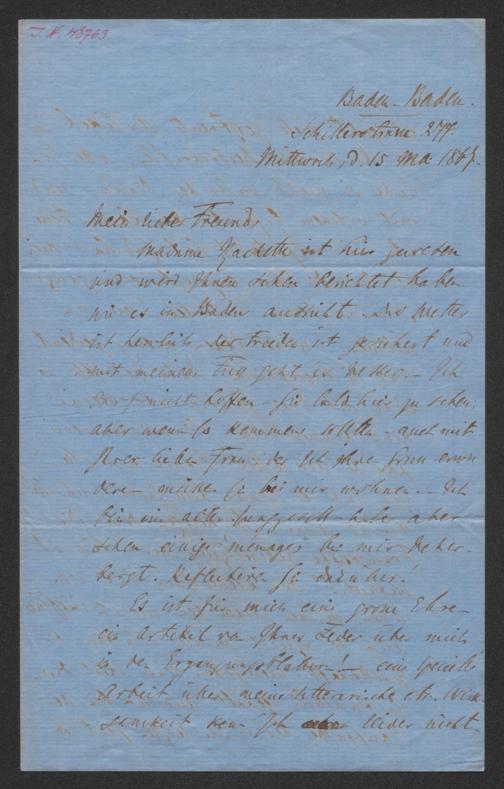 I.N. 48763
Baden-Baden.
Schillerstrasse 277.
Mittwoch, d. 15 Mai 1867.
Mein lieber Freund,
Madame ist hier gewesen
und wird Ihnen schon berichtet haben
wie es in Baden aussieht. Das Wetter
ist herrlich, der Frieden ist gesichert und
mit meinem Fuss geht es besser. - Ich
darf nicht hoffen Sie bald hier zu sehen;
aber wenn Sie kommen sollten - auch mit
Ihrer lieben Frau - der ich Ihre
- müssen Sie bei mir wohnen. - Ich
bin ein alter Junggesell habe aber
schon einige "menages" bei mir beher-
bergt. Reflectiren Sie darüber!
Es ist für mich eine grosse Ehre
ein Artikel von Ihrer Feder über mich
in den Ergänzungsblättern! - eine specielle
Arbeit über meine litterarische etc. Wirk-
samkeit kenn' ich leider nicht